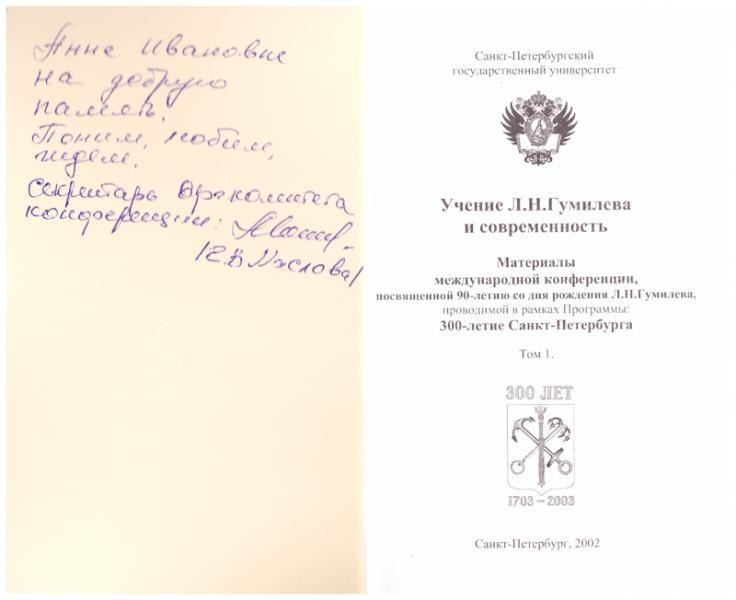 Анне Ивановне
на добрую
память.
Помним, любим,
ждем.
Секретарь Оргкомитета
конференции:
/Е.В Маслова/
Санкт-Петербургский
государственный университет
Учение Л.Н.Гумилева
и современность
Материалы
международной конференции,
посвященной 90-летию со дня рождения Л.Н.Гумилева,
проводимой в рамках Программы:
300-летие Санкт-Петербурга
Том 1.
300 ЛЕТ
1703–2003
Санкт-Петербург, 2002